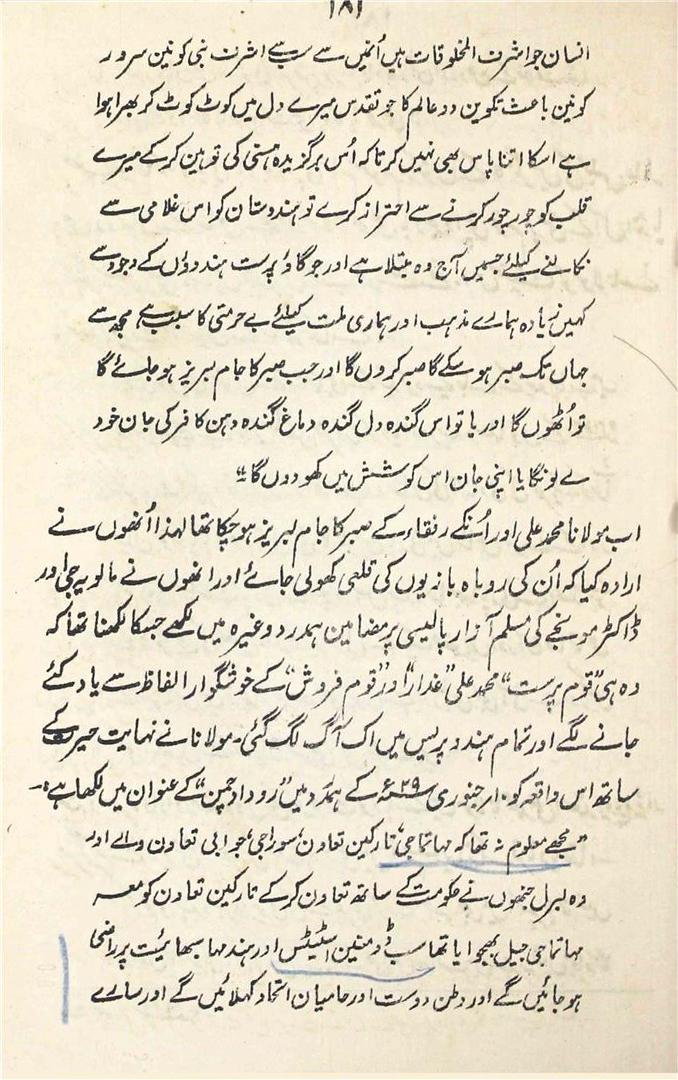 ۱۸۱
انسان جو اشرف المخلوقات ہیں اُنہیں سے سب سے اشرف نبی کونین سرور
کونین باعث تکوین دو عالم کا جو تقدس میرے دل میں کوٹ کوٹ کر بھرا ہوا
ہے اسکا اتنا پاس بھی نہیں کرتا کہ اُس برگزیدہ ہستی کی توہین کرکے میرے
قلب کو چور چور کرنے سے احتراز کرے تو ہندوستان کو اس غلامی سے
نکالنے کیلئے جسمیں آج وہ مبتلا ہے اور جو گاؤ پرست ہندوؤں کے وجود سے
کہیں زیادہ ہمارے مذہب اور ہماری ملت کیلئے بے حرمتی کا سبب ہے مجھ سے
جہاں تک صبر ہو سکے گا صبر کروں گا اور جب صبر کا جام لبریز ہو جائے گا
تو اُٹھوں گا اور یا تو اس گندہ دل گندہ دماغ گندہ دہن کافر کی جان خود
لے لونگا یا اپنی جان اس کوشش میں کھو دوں گا۔"
اب مولانا محمد علی اور اُنکے رفقاء کے صبر کا جام لبریز ہو چکا تھا لہذا اُنھوں نے
ارادہ کیا کہ اُن کی روباہ بازیوں کی قلعی کھولی جائے اور انھوں نے مالویہ جی اور
ڈاکٹر مونجے کی مسلم آزار پالیسی پر مضامین ہمدرد وغیرہ میں لکھے جسکا لکھنا تھا کہ
وہ ہی "قوم پرست" محمد علی "غدار" اور "قوم فروش" کے خوشگوار الفاظ سے یاد کئے
جانے لگے اور تمام ہندو پریس میں اک آگ لگ گئی۔ مولانا نے نہایت حیرت کے
ساتھ اس واقعہ کو ۱۰ر جنوری ۲۹ء کے ہمدرد میں "روداد چمن" کے عنوان میں لکھا ہے:۔
"مجھے معلوم نہ تھا کہ مہاتما جی، تارکین تعاون، سوراجی، جوابی تعاون والے اور
وہ لبرل جنھوں نے حکومت کے ساتھ تعاون کرکے تارکین تعاون کو معہ
مہاتما جی جیل بھجوایا تھا سب ڈومنین اسٹیٹس اور ہندو مہا سبھائیت پر راضی
ہو جائیں گے اور وطن دوست اور حامیان اتحاد کہلائیں گے اور سارے